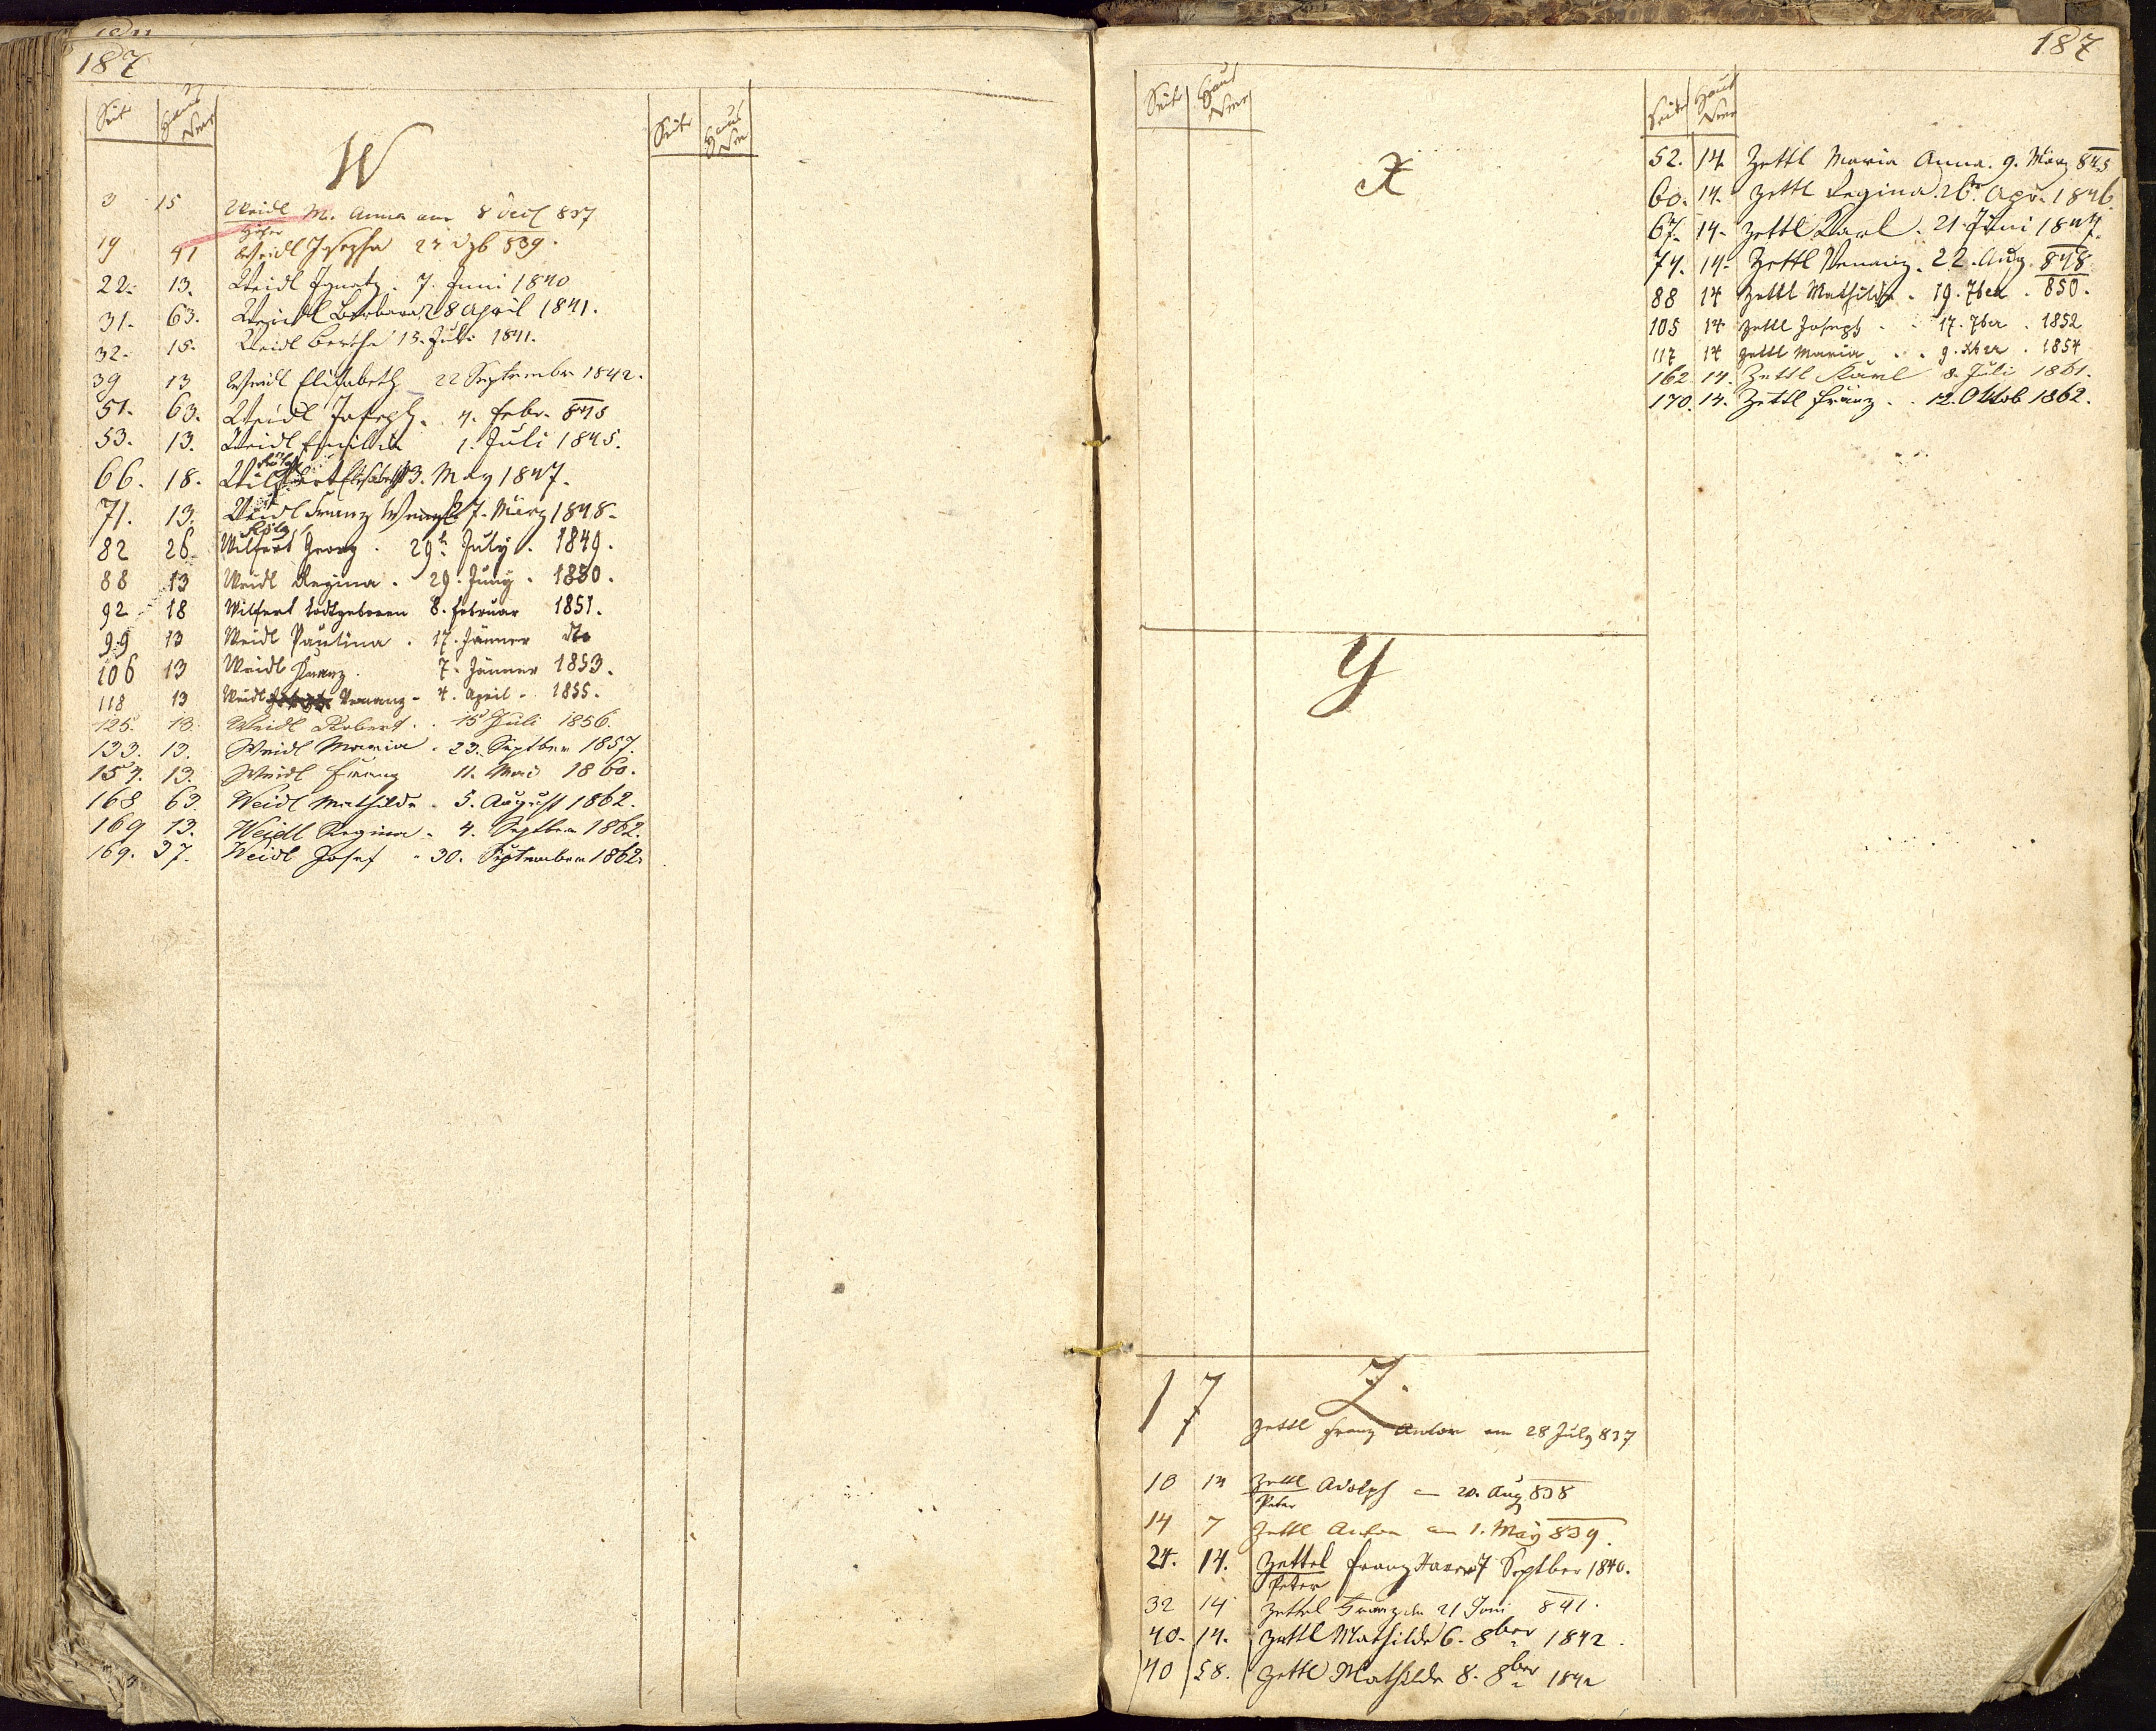 187
Seite Haus Nro
W
Seite Haus Nro
3 15 Weidl M. Anna am 8 Dec 837
19 41 Weidl Josepha 22 Dzb 839.
22. 13. Weidl Ignatz. 7. Juni 1840
31. 63. Weidl Barbara 28 April 1841.
32. 15. Weidl Bertha 15. Juli 1841.
39 13 Weidl Elisabeth 22 September 1842.
51. 63. Weidl Joseph. 4. Febr. 845
53. 13. Weidl 1. Juli 1845.
66. 18. Wilfert Elisabeth 3. May 1847.
71. 13. Weidl Franz 7. März 1848.
82 26. Wilfert Georg. 29t July. 1849.
88 13 Weidl Regina. 29. Juny. 1850.
92 18 Wilfert todtgeboren 8. Februar 1851.
99 13 Weidl Paulina. 17. Jänner dto
106 13 Weidl Franz. 7. Jänner 1853.
118 13 Weidl Venanz - 4. April - 1855.
125. 13. Weidl Robert. . 15 Juli 1856.
133. 13. Weidl Maria. 23. Septber 1857.
157. 13. Weidl Franz 11. Mai 1860.
168 63. Weidl Mathilde. 5. August 1862.
169 13. Weidl Regina. 4. Septber 1862.
169. 37. Weidl Josef. 30. September 1862.
187
Seite Haus Nro
X
Y
Z.
17 Zettl Franz Anton am 28 July 837
10 14 Zettl Adolph 20. Aug 838
Peter
14 7 Zettl Anton am 1. May 839.
24. 14. Zettel Franz Xaver 7 Septber 1840.
Peter
32 14 Zettel Franz den 21 Juni 841.
40. 14. Zettl Mathilde 6. 8ber 1842.
40 58. Zettl Mathilde 8. 8ber 1842
Seite Haus Nro
52. 14. Zettl Maria Anna. 9. März 845
60. 14. Zettl Regina. 26. Apr. 1846.
67. 14. Zettl Karl. 21. Juni 1847.
74. 14. Zettl Venanz. 22. Aug. 848
88 14 Zettl Mathilde. 19. 7ber. 850.
105 14 Zettl Joseph. . 17. 7ber. 1852
117 14 Zettl Maria. . 9. Xber. 1854
162. 14. Zettl Karl 8. Juli 1861.
170. 14. Zettl Franz. . 12. Oktob 1862.